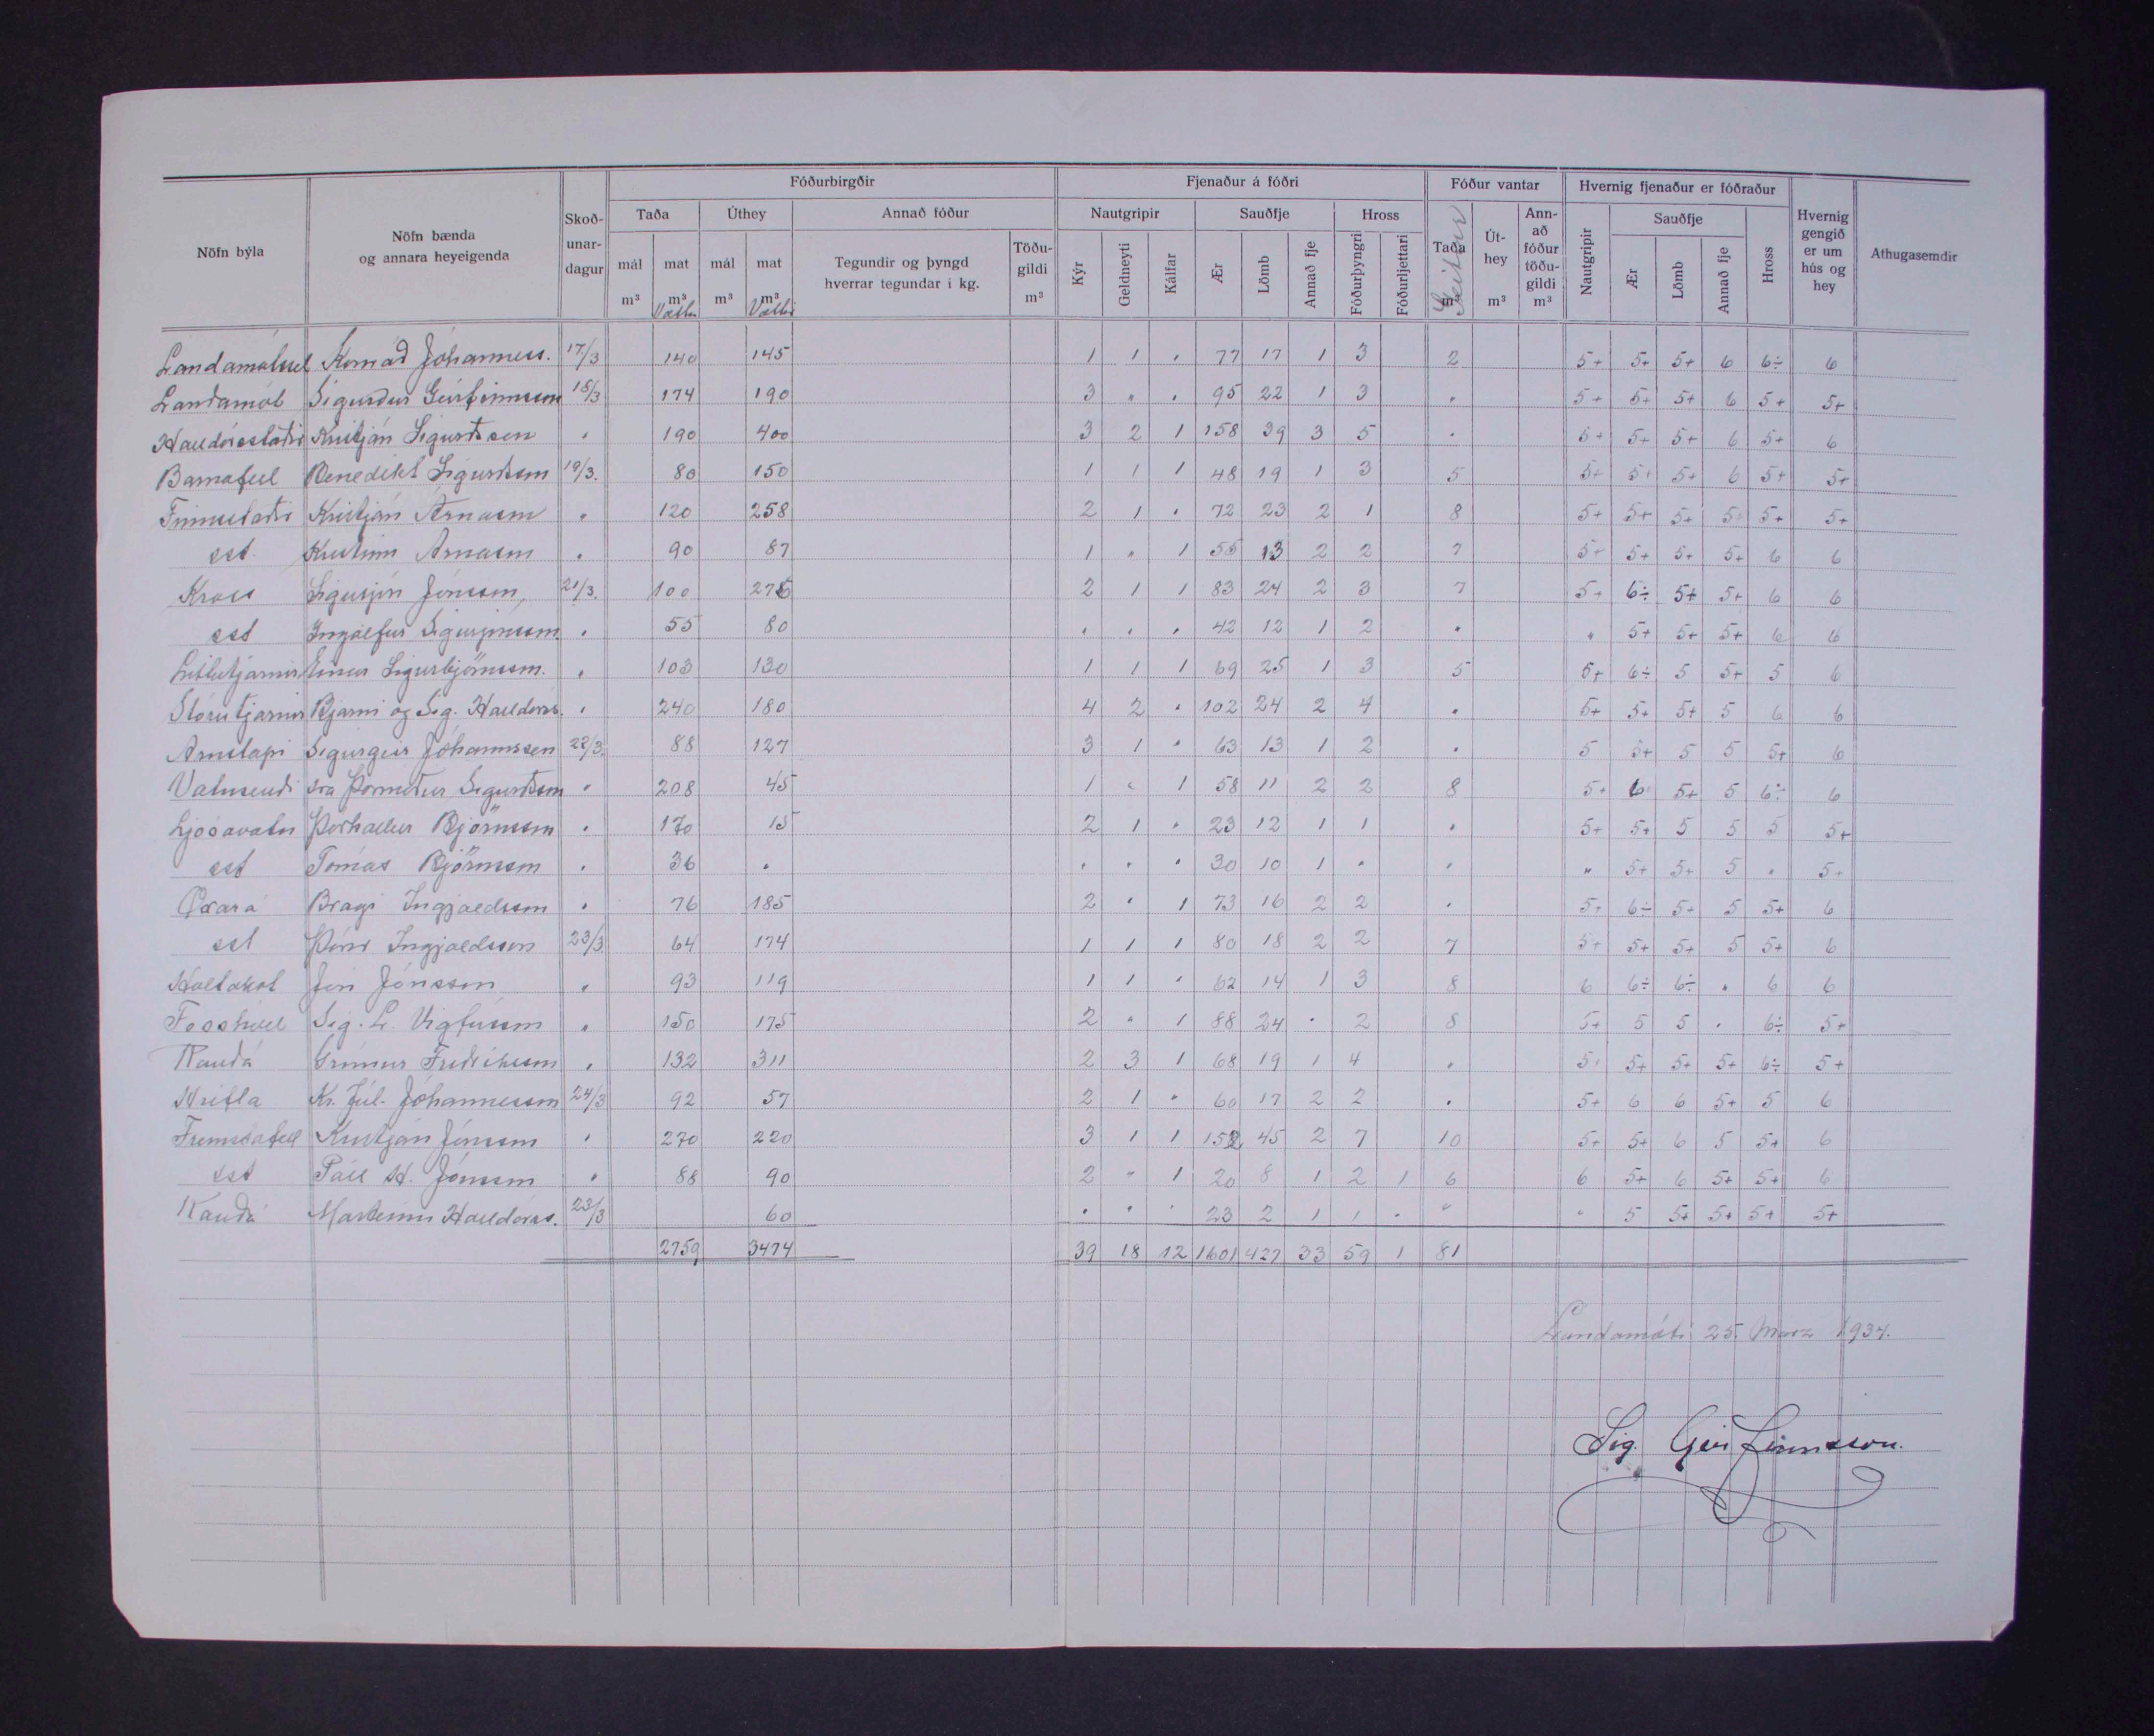 Fóðurbirgðir Fjenaður á fóðri Fóður vantar Hvernig fjenaður er fóðraður
Nöfn býla Nöfn bænda og annara heyeigenda Skoðunardagur Taða Úthey Annað fóður Nautgripir Sauðfje Hross Taða Geitur m³ Úthey m³ Annað fóður töðugildi m³ Nautgripir Sauðfje Hross Hvernig gengið er um hús og hey Athugasemdir
mál m³ mat m³ mál m³ mat m³ Tegundir og þyngd hverrar tegundar i kg. Töðugildi m³ Kýr Geldneyti Kálfar Ær Lömb Annað fje Fóðurþyngri Fóðurljettari Ær Lömb Annað fje
Landamótssel Konrad Jóhanness. 17/3 140 145 1 1 " 77 17 1 3 2 5+ 5+ 5+ 6 6÷ 6
Landamót Sigurður Geirfinnsson 18/3 174 190 3 " " 95 22 1 3 " 5+ 5+ 5+ 6 5+ 5+
Halldórsstaðir Kristján Sigurðsson " 190 400 3 2 1 158 39 3 5 " 5+ 5+ 5+ 6 5+ 6
Barnafell Benedikt Sigurðsson 19/3. 80 150 1 1 1 48 19 1 3 5 5+ 5+ 5+ 6 5+ 5+
Finnsstaðir Kristján Árnason " 120 258 2 1 " 72 23 2 1 8 5+ 5+ 5+ 5 5+ 5+
sst. Kristinn Árnason " 90 87 1 " 1 55 13 2 2 7 5+ 5+ 5+ 5+ 6 6
Kross Sigurjón Jónsson, 21/3. 100 276 2 1 1 83 24 2 3 7 5+ 6÷ 5+ 5+ 6 6
sst Ingólfur Sigurjónsson " 55 80 " " " 42 12 1 2 " " 5+ 5+ 5+ 6 6
Litlutjarnir Einar Sigurbjörnsson. " 103 130 1 1 1 69 25 1 3 5 5+ 6÷ 5 5+ 5 6
Stórutjarnir Bjarni og Sig. Halldórs. " 240 180 4 2 " 102 24 2 4 " 5+ 5+ 5+ 5 6 6
Arnstapi Sigurgeir Jóhannsson 22/3. 88 127 3 1 " 63 13 1 2 " 5 5+ 5 5 5+ 6
Vatnsendi sra Þormóður Sigurðsson " 208 45 1 " 1 58 11 2 2 8 5+ 6 5+ 5 6÷ 6
Ljósavatn Þórhallur Björnsson " 170 15 2 1 " 23 12 1 1 " 5+ 5+ 5 5 5 5+
sst Tómas Björnsson " 36 " " " " 30 10 1 " " " 5+ 5+ 5 " 5+
Öxará Bragi Ingjaldsson " 76 185 2 " 1 73 16 2 2 " 5+ 6÷ 5+ 5 5+ 6
sst Þórir Ingjaldsson 23/3 64 174 1 1 1 80 18 2 2 7 5+ 5+ 5+ 5 5+ 6
Holtakot Jón Jónsson " 93 119 1 1 " 62 14 1 3 8 6 6÷ 6÷ " 6 6
Fosshóll Sig. L. Vigfússon " 150 175 2 " 1 88 24 " 2 8 5+ 5 5 " 6÷ 5+
Rauðá Grímur Friðriksson " 132 311 2 3 1 68 19 1 4 " 5+ 5+ 5+ 5+ 6÷ 5+
Hrifla Kr. Júl. Jóhannesson 24/3 92 57 2 1 " 60 17 2 2 " 5+ 6 6 5+ 5 6
Fremstafell Kristján Jónsson " 270 220 3 1 1 152 45 2 7 10 5+ 5+ 6 5 5+ 6
sst Páll H. Jónsson " 88 90 2 " 1 20 8 1 2 1 6 6 5+ 6 5+ 5+ 6
Rauðá Marteinn Halldórss. 23/3 60 " " " 23 2 1 1 " " " 5 5+ 5+ 5+ 5+
2759 3474 39 18 12 1601 427 33 59 1 81
Landamóti 25. Marz 1934.
Sig. Geirfinnsson.